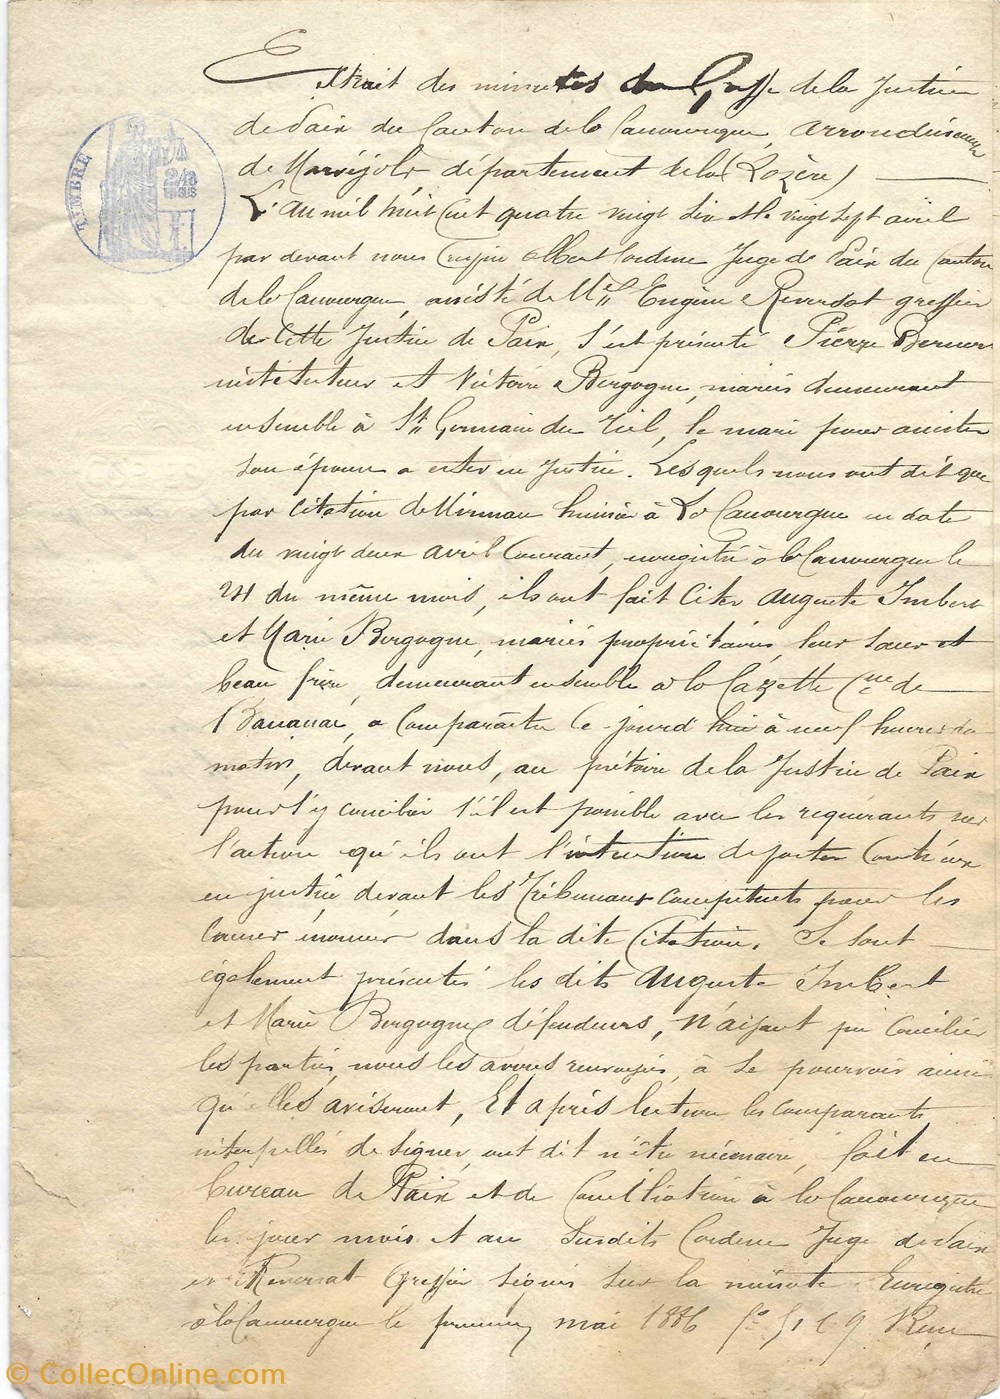 Extrait des minutes du Greffe de la Justice
de Paix du Canton de la Canourgue, arrondissement
de Marvéjols département de la (Lozère)
L'an mil huit cent quatre vingt six et le vingt sept avril
par devant nous Crespin Albert Juge de Paix du Canton
de la Canourgue, assisté de Me Eugène Reversat greffier
de cette Justice de Paix, s'est présenté Pierre
instituteur et Victoire Bergogne, mariés demeurant
ensemble à St Germain du Teil, le mari pour assister
son épouse a ester en Justice. Lesquels nous ont dit que
par citation de huissier à La Canourgue en date
du vingt deux avril Courant, enregistré à la Canourgue le
24 du même mois, ils ont fait Citer Auguste Imbert
et Marie Bergogne, mariés propriétaires, leur soeur et
beau frère, demeurant ensemble à la Cazette Cne de
Banassac, a Comparaître Ce jourd'hui à neuf heures du
matin, devant nous, au prétoire de la Justice de Paix
pour s'y concilier s'il est possible avec les requérants sur
l'action qu'ils ont l'intention de porter Contr'eux
en justice devant les Tribunaux compétents pour les
causes énoncées dans la dite Citation. Se sont
également présentés les dits Auguste Imbert
et Marie Bergogne défendeurs, N'ayant pu Concilier
les parties, nous les avons renvoyés, à se pourvoir ainsi
qu'elles aviseront, Et après lecture les comparants
interpellés de signer, ont dit n'être nécessaire, fait en
bureau de Paix et de Conciliation à la Canourgue
les jour mois et an susdits Juge de Paix
et Reversat Greffier signés sur la minute. Enregistré
à la Canourgue le premier mai 1886 fo 51 C 9 Reçu
TIMBRE
2/10
EN SUS
© CollecOnline.com